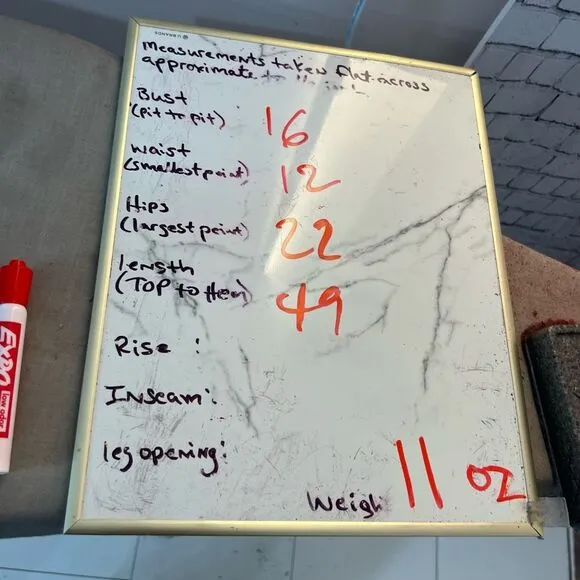 U BRANDS
measurements taken flat across
approximate to
Bust
(pit to pit) 16
waist
(smallest point) 12
Hips
(largest point) 22
length
(TOP to Hem) 49
Rise :
Inseam:
leg opening:
Weigh 11 oz
EXPO
low odor